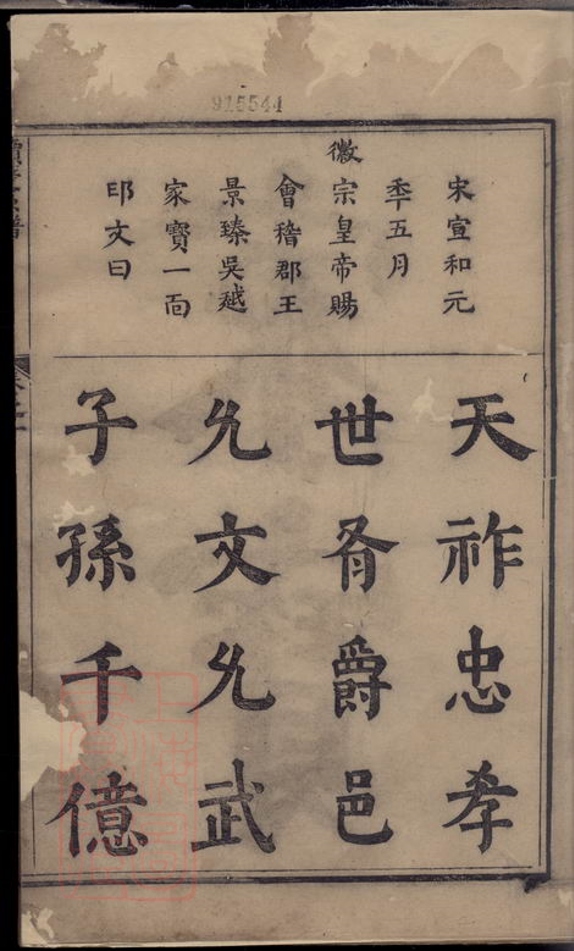 915544
宋宣和元
秊五月
徽宗皇帝賜
會稽郡王
景臻吳越
家寶一靣
印文曰
天祚忠孝
世胥爵邑
允文允武
子孫千億